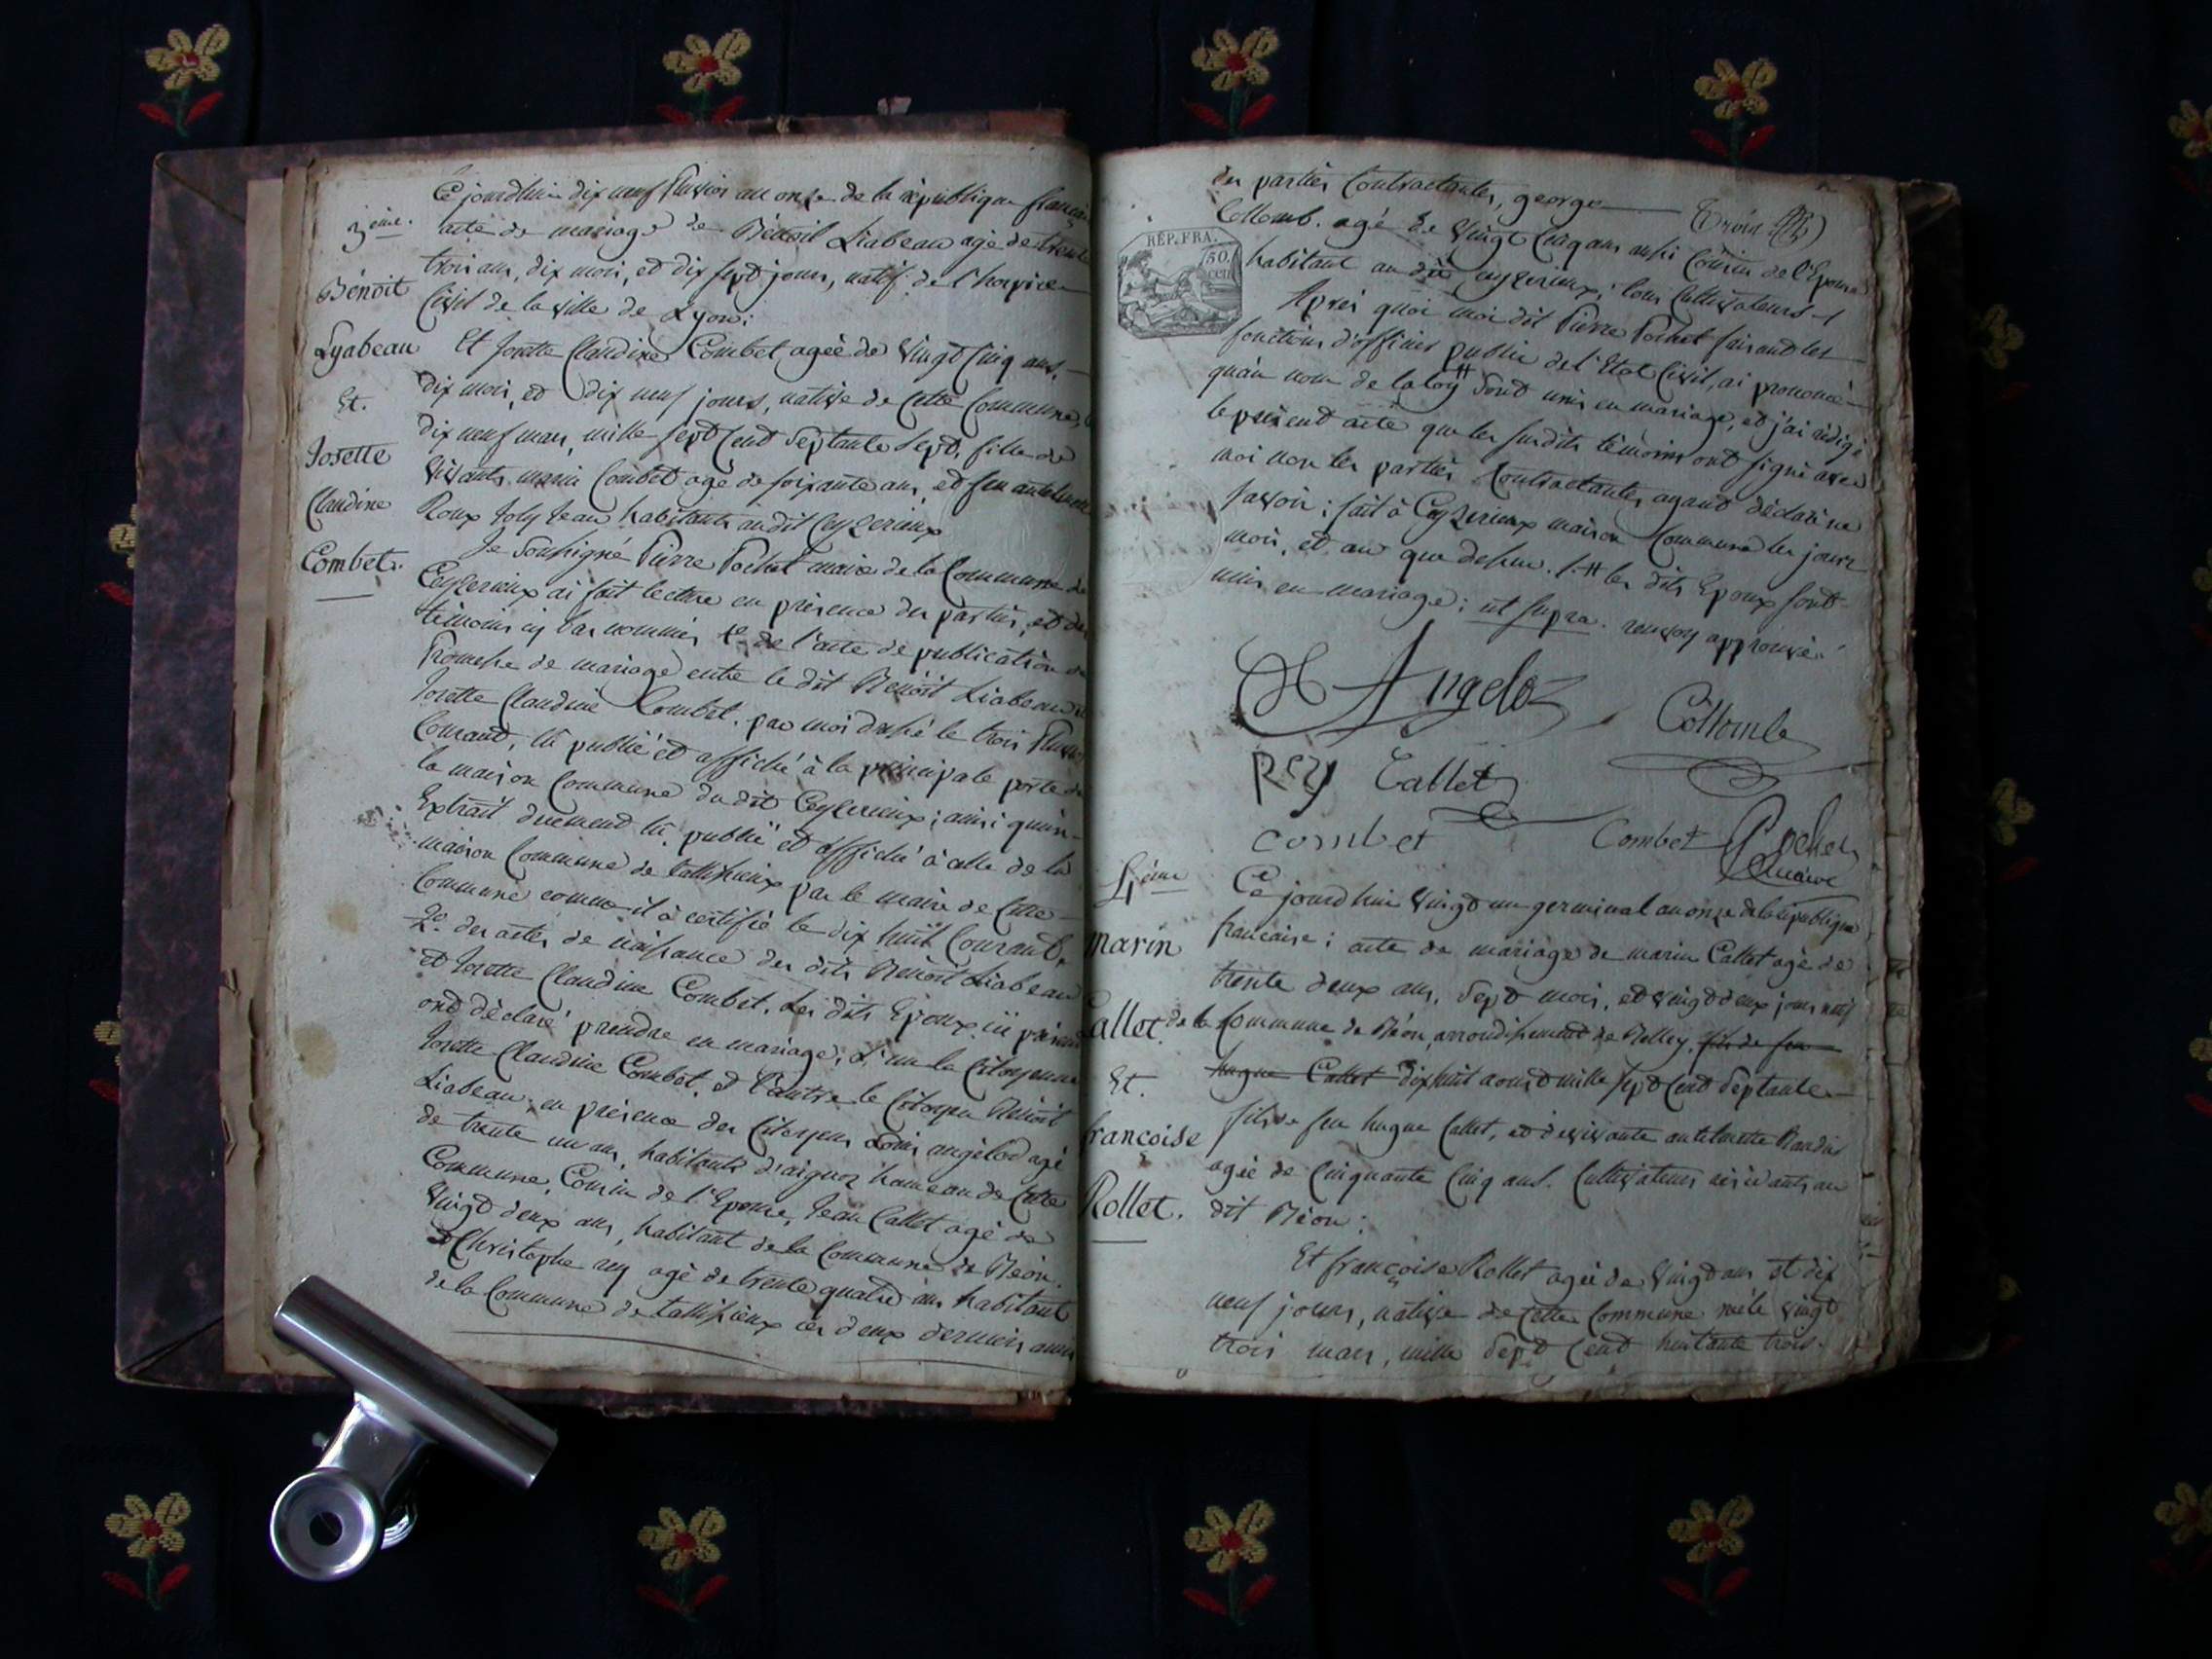 3ème.
Bénoit
Lyabeau
Et.
Josette
Claudine
Combet.
Ce jourdhui dix neuf Pluviose an onze de la république française
acte de mariage de Bénoit Liabeau agé de trente
trois ans, dix mois, et dix sept jours, natif de l'hospice
Civil de la ville de Lyon;
Et Josette Claudine Combet agée de Vingt Cinq ans,
dix mois, et dix neuf jours, native de cette Commune, le
dix neuf mars, mille sept cent septante sept, fille de
Vivants marin Combet agé de soixante ans, et feu
Roux Joly Jean habitants audit Ceyzerieux
Je Soussigné Pierre Pochet maire de la Commune de
Ceyzerieux ai fait lecture en présence des parties, et des
témoins cy bas nommés 1e de l'acte de publication de
Promesse de mariage entre le dit Bénoit Liabeau et
Josette Claudine Combet. par moi dressé le trois Pluviose
Courant, lu publié et affiché à la principale porte de
la maison Commune du dit Ceyzerieux; ainsi qu'un
Extrait duement lu, publié et affiché à celle de la
maison Commune de tallissieux par le maire de cette
Commune comme il a certifié le dix huit Courant,
2e. des actes de naissance des dits Bénoit Liabeau
et Josette Claudine Combet. Les dits Epoux ici présents
ont déclaré prendre en mariage, L'un la Citoyenne
Josette Claudine Combet, et L'autre le Citoyen Bénoit
Liabeau en présence des Citoyens Louis angelot agé
de trente un ans, habitant d'aignoz hameau de cette
Commune, Cousin de l'Epouse, Jean Callet agé de
Vingt deux ans, habitant de la Commune de Béon.
Christophe rey agé de trente quatre ans habitant
de la Commune de tallissieux ces deux derniers amis
des parties Contractantes, george
Trois
Collomb. agé de Vingt Cinq ans aussi Cousin de l'Epouse
RÉP. FRA.
50.
cen.
habitant au dit ceyzerieux; tous Cultivateurs
Après quoi moi dit Pierre Pochet faisant les
fonctions d'officier public de l'Etat Civil, ai prononcé
qu'au nom de la loy # sont unis en mariage, et j'ai rédigé
le présent acte que les susdits témoins ont signé avec
moi non les parties Contractantes ayant déclaré ne
savoir; fait à Ceyzerieux maison Commune les jour,
mois, et an que dessus. /. # les dits Epoux sont
unis en mariage; ut supra. renvoy approuvé.
Angeloz
Collomb
Rey Callet
combet
Combet Pochet
maire
4ème
Marin
Callet.
Et.
françoise
Rollet.
Ce jourdhui Vingt un germinal an onze de la république
francaise; acte de mariage de marin Callet agé de
trente deux ans, Sept mois, et vingt deux jours natif
de la Commune de Béon, arrondissement de Belley, fils de feu
hugue Callet dix huit aoust mille sept cent Septante
fils de feu hugue Callet, et de vivante antelmette
agée de Cinquante Cinq ans. Cultivateurs au
dit Béon;
Et françoise Rollet agée de Vingt ans et dix
neuf jours, native de cette Commune née le vingt
trois mars, mille Sept Cent huitante trois.